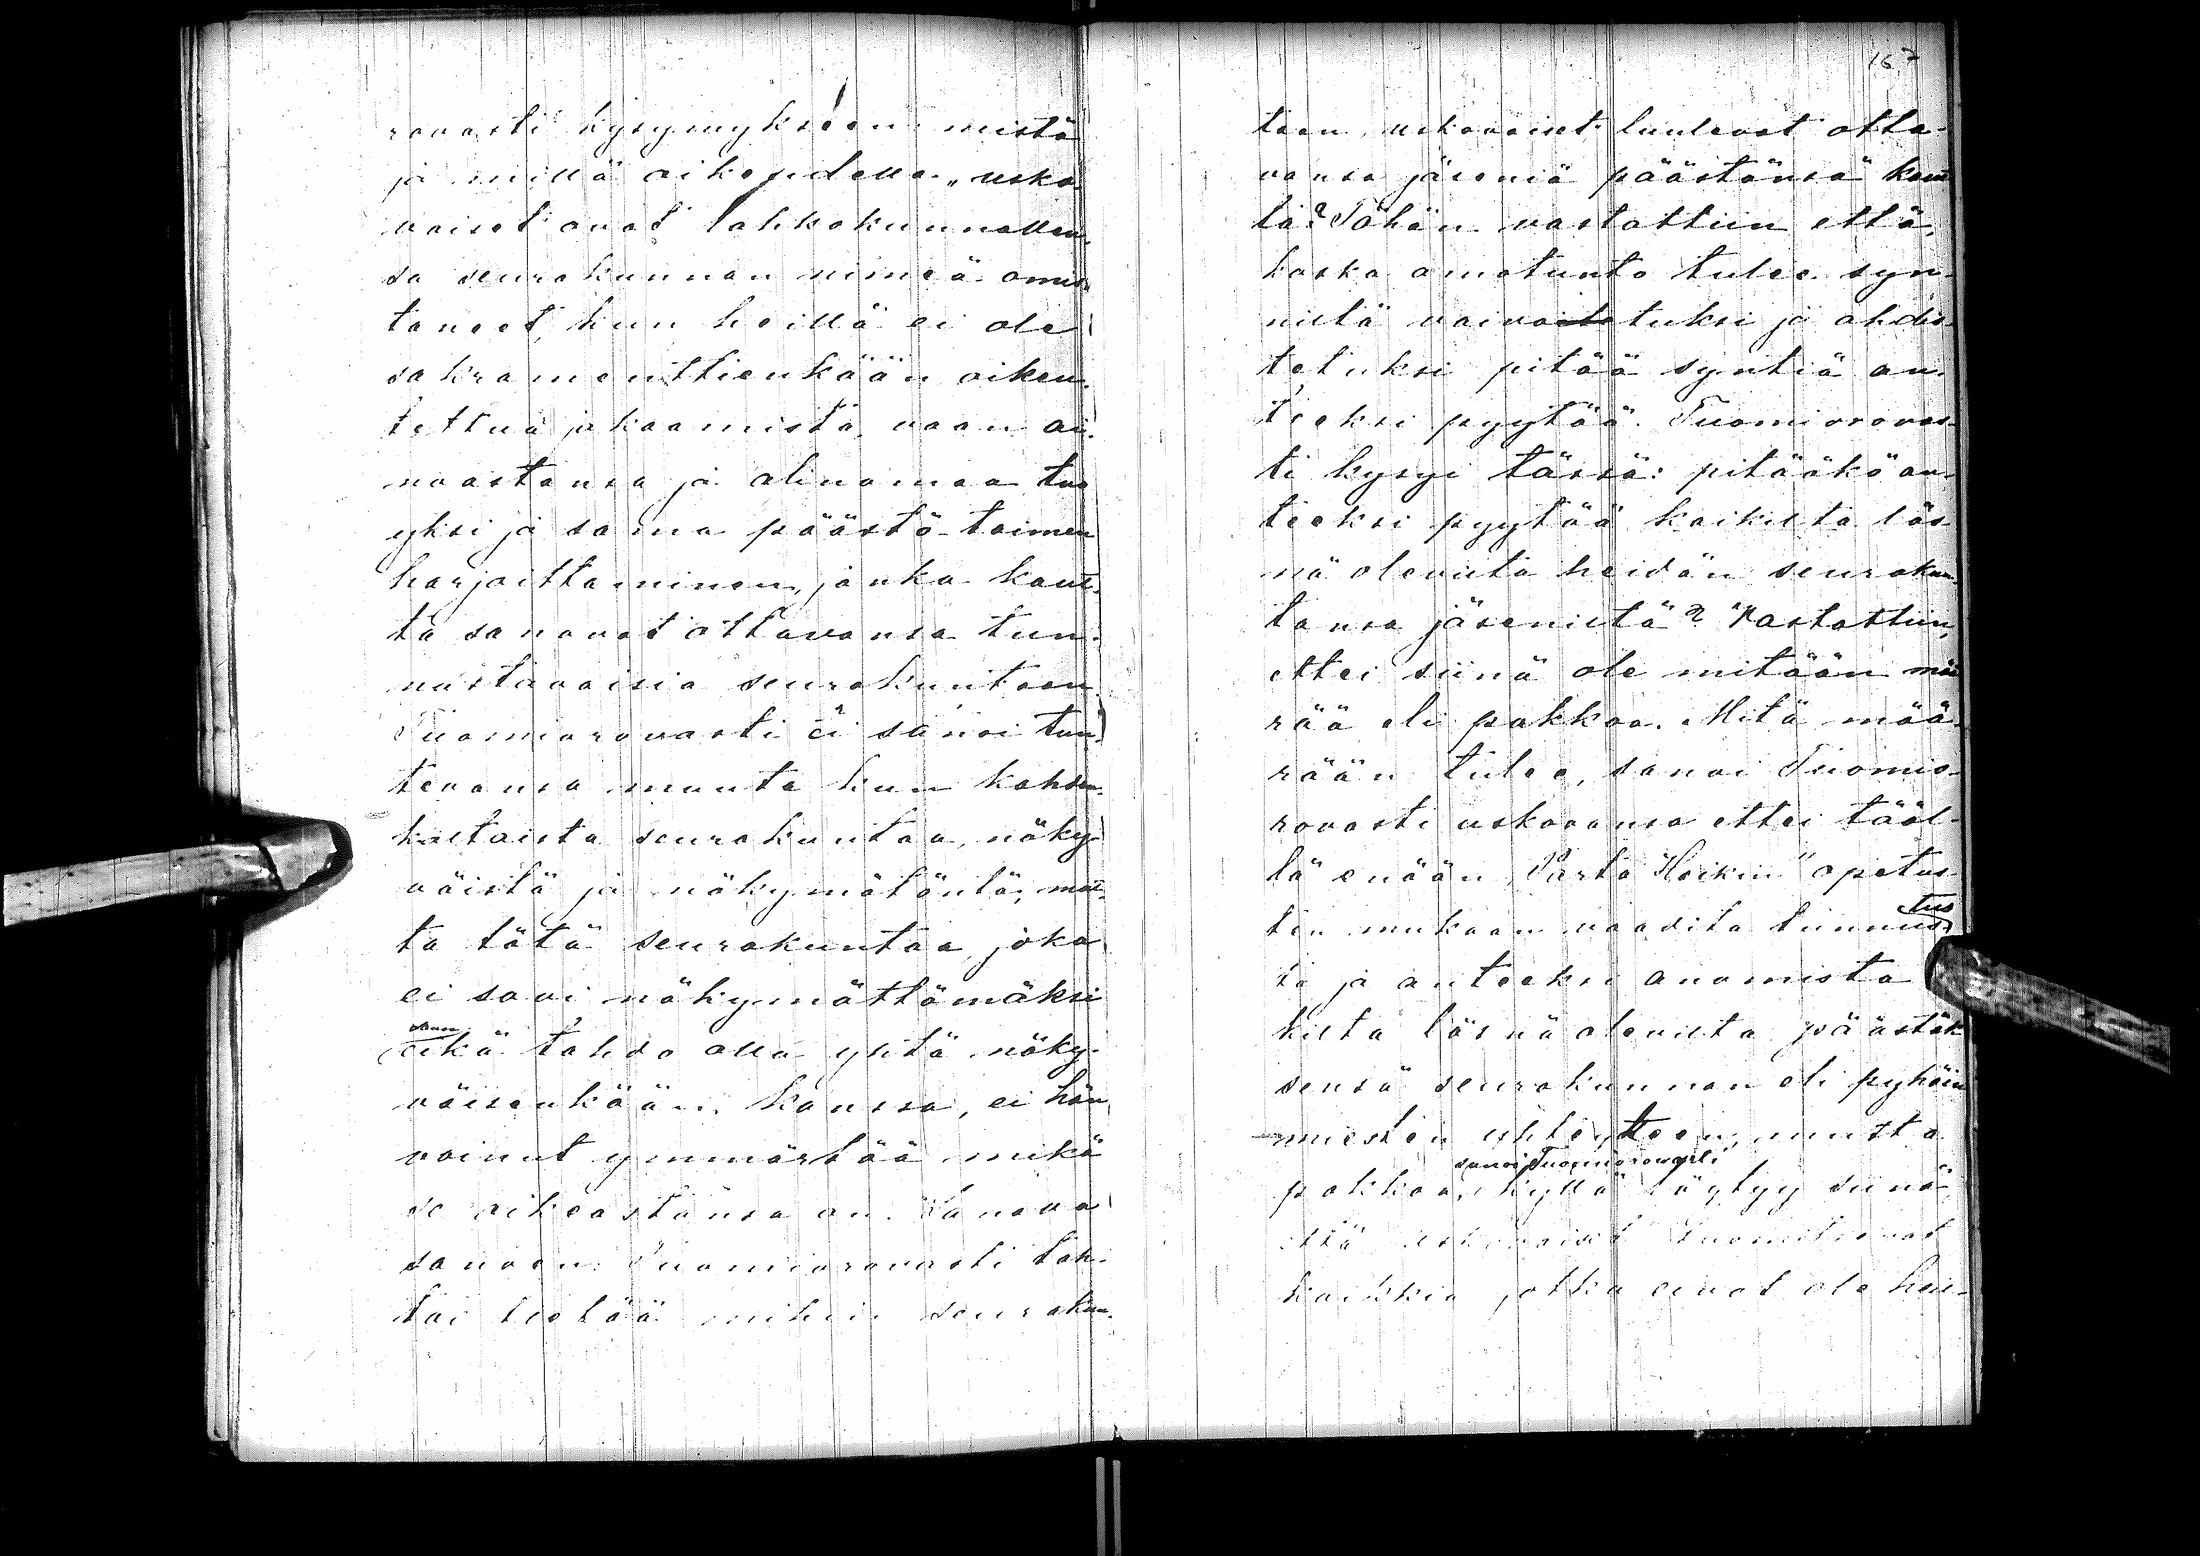 rovasti kysymykseen mistä
ja millä oikeudella "usko-
vaiset ovat lahkokunnallen-
sa seurakunnan nimeä omis-
taneet, kun heillä ei ole
sakramenttienkään oikeu-
tettua jakaamista, vaan ai-
noastansa ja alinomaa tuo
yksi ja sama päästö-toimen
harjoittaminen, jonka kaut-
ta sanovat ottavansa tun-
nustavaisia seurakuntaan.
Tuomiorovasti ei sanoi tun-
tevansa muuta kun kahden-
kaltaista seurakuntaa, näky-
väistä ja näkymätöntä; mut-
ta tätä seurakuntaa, joka
ei sovi näkymättömäksi
olemaan
eikä tahdo olla yhtä näky-
väisenkään kanssa, ei hän
voinut ymmärtää mikä
se oikeastansa on. Sanova
sanoen Tuomiorovasti tah-
toi tietää mihin seurakun-
167
taan uskovaiset luulevat otta-
vansa jäseniä päästönsä kaut-
ta? Tähän vastattiin että,
koska omatunto tulee syn-
nistä vaivatuksi ja ahdis-
tetuksi pitää syntiä an-
teeksi pyytää. Tuomiorovas-
ti kysyi tässä: pitääkö an-
teeksi pyytää kaikilta läs-
nä olevilta heidän seurakun-
tansa jäseniltä? Vastattiin,
ettei siinä ole mitään mää-
rää eli pakkoa. Mitä mää-
rään tulee, sanoi Tuomio-
rovasti uskovansa ettei tääl-
lä enään "Parta Heikin" opetus-
tus
ten mukaan vaadita tunnus-
ta ja anteeksi anomista
kilta läsnä olevilta päästäk-
sensä seurakunnan eli pyhäin
miesten yhteyteen, mutta
sanoi Tuomiorovasti
pakkoa, kyllä löytyy siinä
että uskovaiset tuomitsevat
kaikkia jotka eivät ole hei-